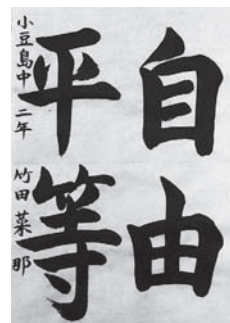 自由
平等
小豆島中 二年 竹田菜那